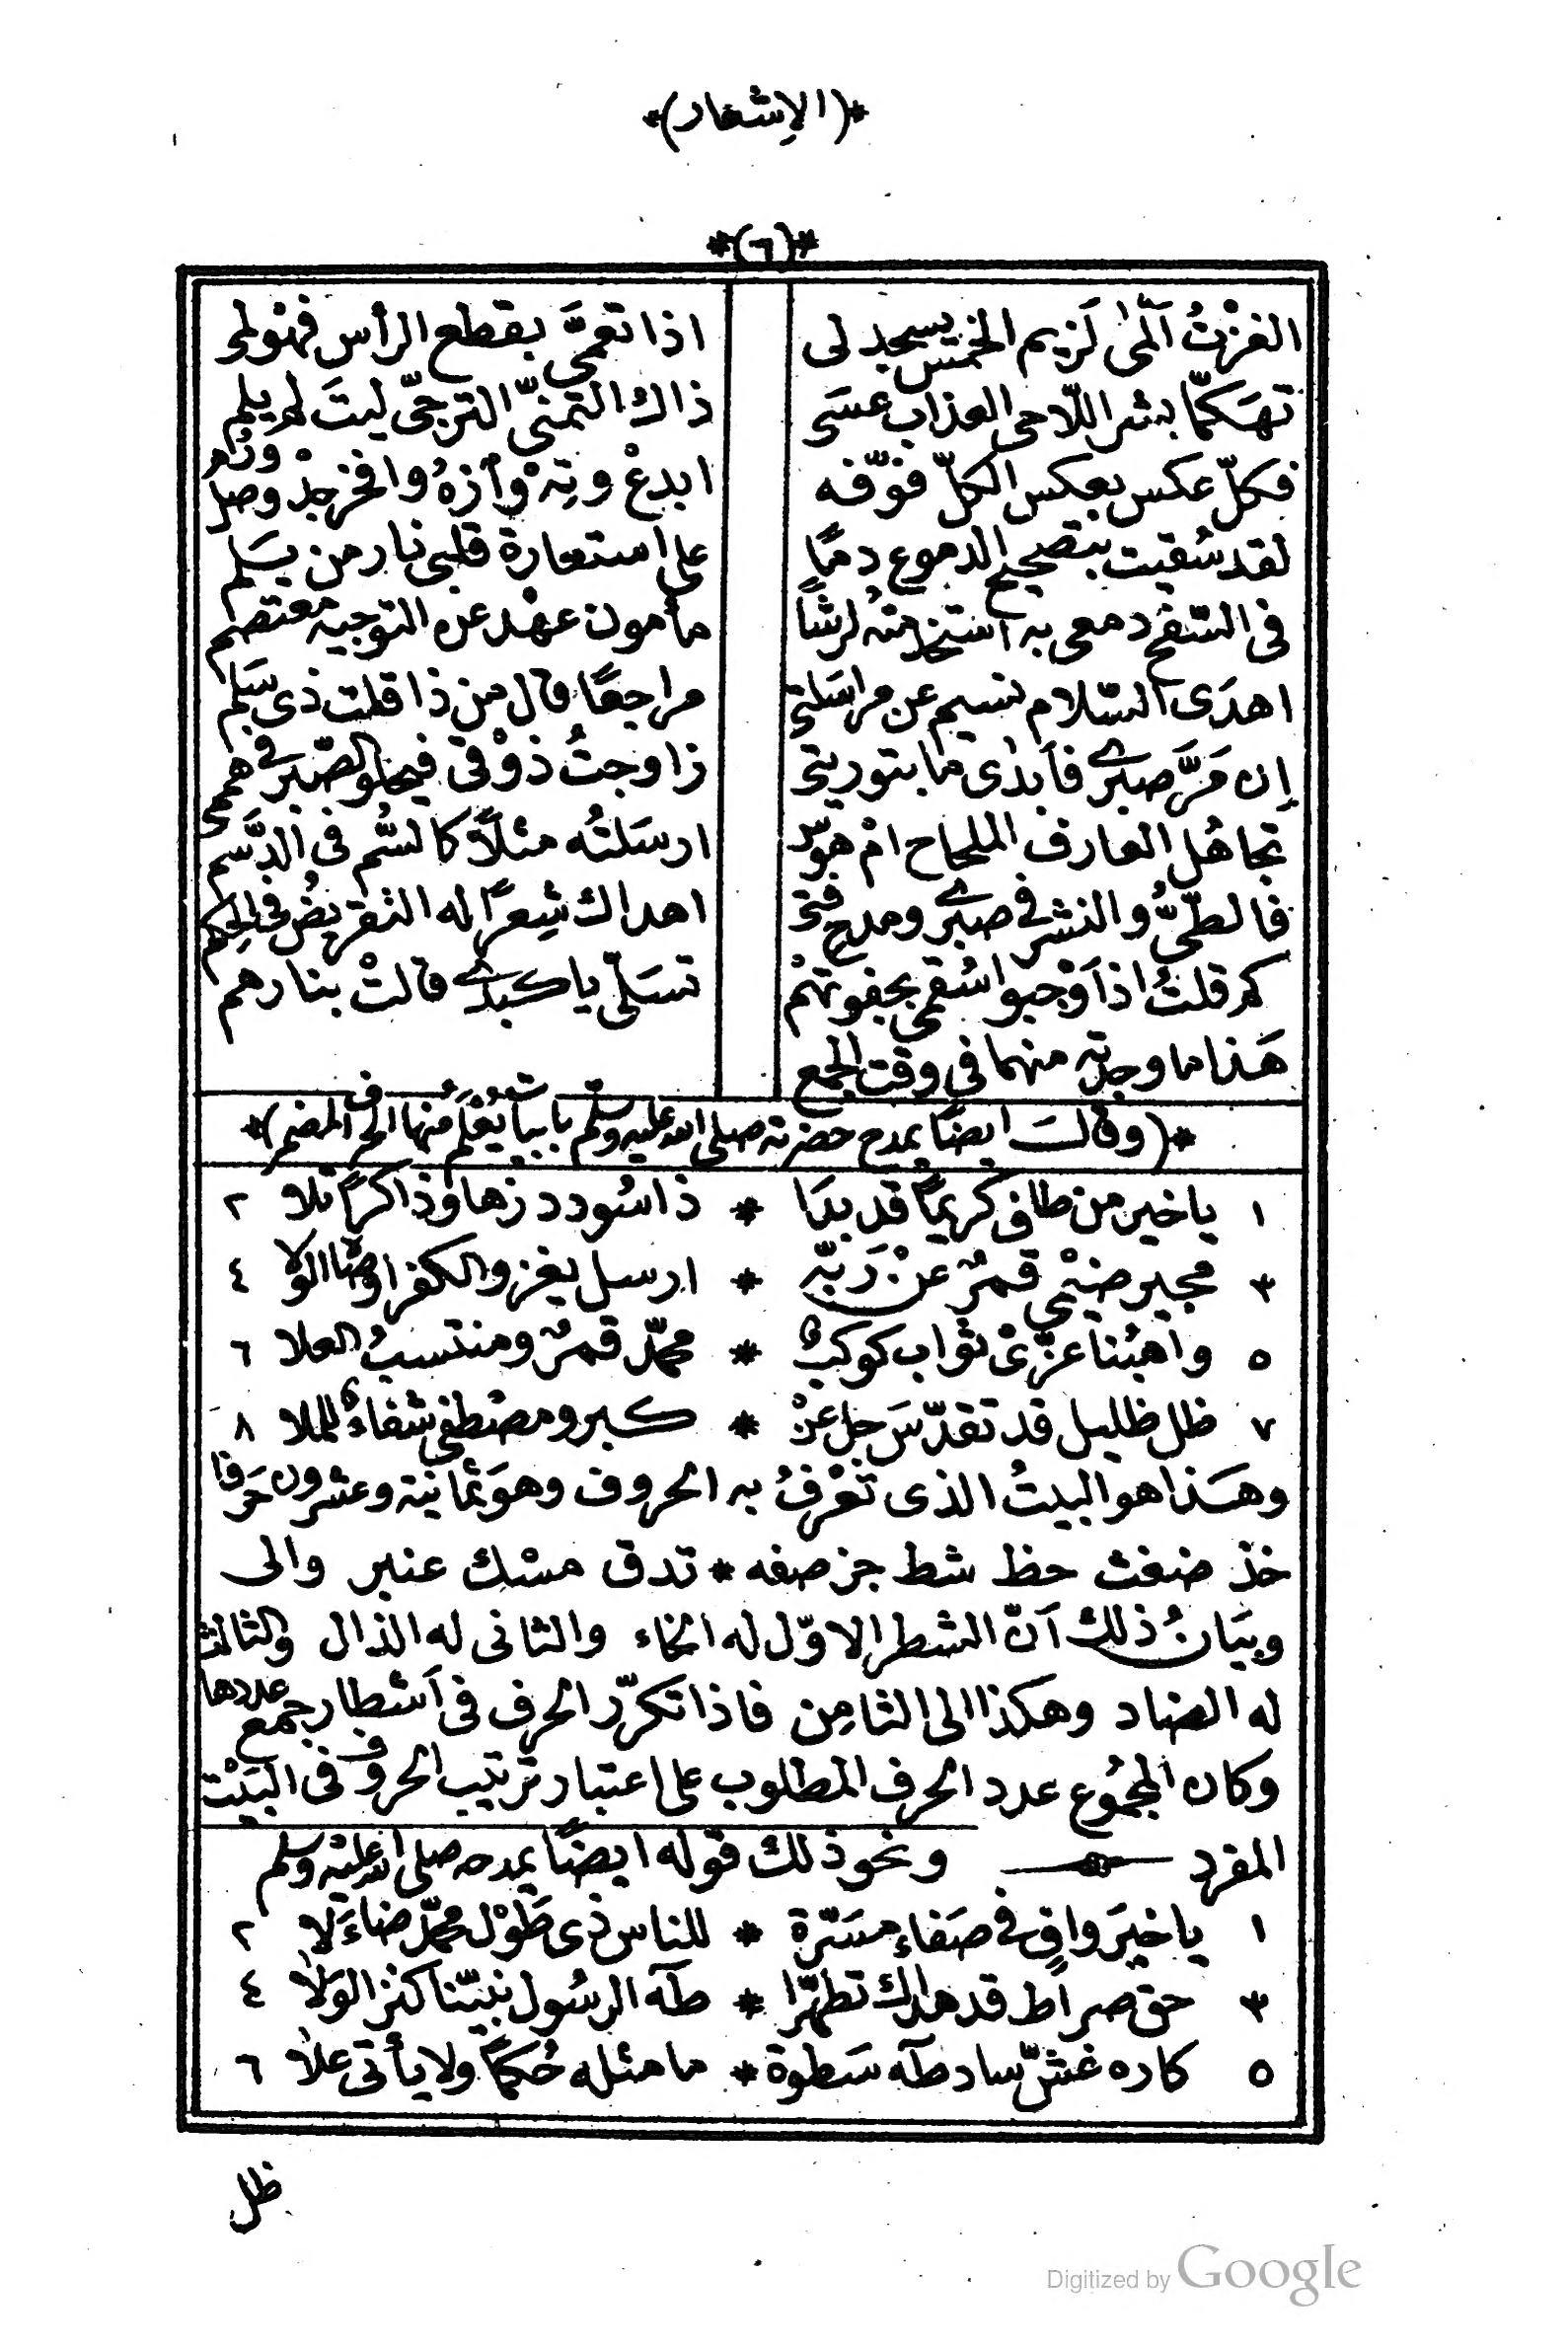 *(الاشعار)*
*(٦)*
الغزْتُ آلمى لَزيم الخمس يسجد لى اذا تعمَّى بقطع الرأس فهولى
تهَكمًّا بشر اللّاحى العذاب عسَى ذاك التمنىّ الترجىّ ليتَ لم يلم
فكلّ عكس بعكس الكلّ فوّفه ابدعْ وتِهْ وأزهُ وافخر جدْ وصل ورُم
لقد سُقيت بتصحيح الدموع دمًا على استعارة قلبى نار من يسَلم
فى السّفح دمعى به استخدامتهُ لرشًا مأمون عهْد عن التوجيه معتصم
اهدَى السّلام نسيم عن مراسَلتى مراجعًا قال من ذا قلت ذى سَلم
إن مَرَّ صبرى فأبدَى ما بتوريتى زاوجتُ ذوْقى فيحلو الصّبر فى هممى
تجاهُل العارف الملحاح امْ هوسٌ ارسَلتُه مثلاً كالسُّم فى الدَّسم
فالطّىُّ والنشر فى صبرى ومدح فتى اهداك شِعرًا له التقريضُ فى الحِكم
كم قلتُ اذ أوْجبوا سُقمى بجفوتهمْ تسَلّى يا كبدى قالتْ بنارهم
هَذا ما وجدته منهما فى وقت الجمع
*(وقالَ ايضًا يمدح حضرته صلى الله عليه وسلّم بابيات يُعْلَمُ منها الحرف المضمر)*
١ يا خير من طاف كريمًا قد بدَا * ذا سُودد زها وذاكرًا تلا ٢
٣ مجير ضيْمى قمرٌ عنْ رَبّه * ارسل يغزو الكفر اوضا الولا ٤
٥ واهبُنا عزّىْ ثواب كوكبٌ * محمّد قمرٌ ومنتسبُ العلا ٦
٧ ظل ظليل قد تقدّسَ جل عنْ * كبر ومصْطفى شفاءٌ للملا ٨
وهَذا هو البيتُ الذى تعْرفُ به الحروف وهوَ ثمانية وعشرون حَرفا
خذ ضغث حظ شط جز صفه * تدق مسْك عنبر والى
وبيَانُ ذلك آن الشطر الاوّل له الخاء والثانى له الذال والثالث
له الضاد وهكذا الى الثامِن فاذا تكرّر الحرف فى آشطار جمع عددها
وكان المجمُوع عدد الحرف المطلوب على اعتبار ترتيب الحروف فى البيْت
المفرد ونحو ذلك قوله ايضًا يمدحه صلى الله عليْه وسلم
١ يا خيرَ وافٍ فى صَفاءِ مسَرّة * للناس ذى طَوْل محمّد ضاءَ لا ٢
٣ حق صراط قد هداك تطهّرًا * طآه الرسُول نبيّنا كنز الوَلا ٤
٥ كاره غشّ ساد طآه سَطوة * ما مثله حُكمًا ولا يأتى علا ٦
ظل
Digitized by Google